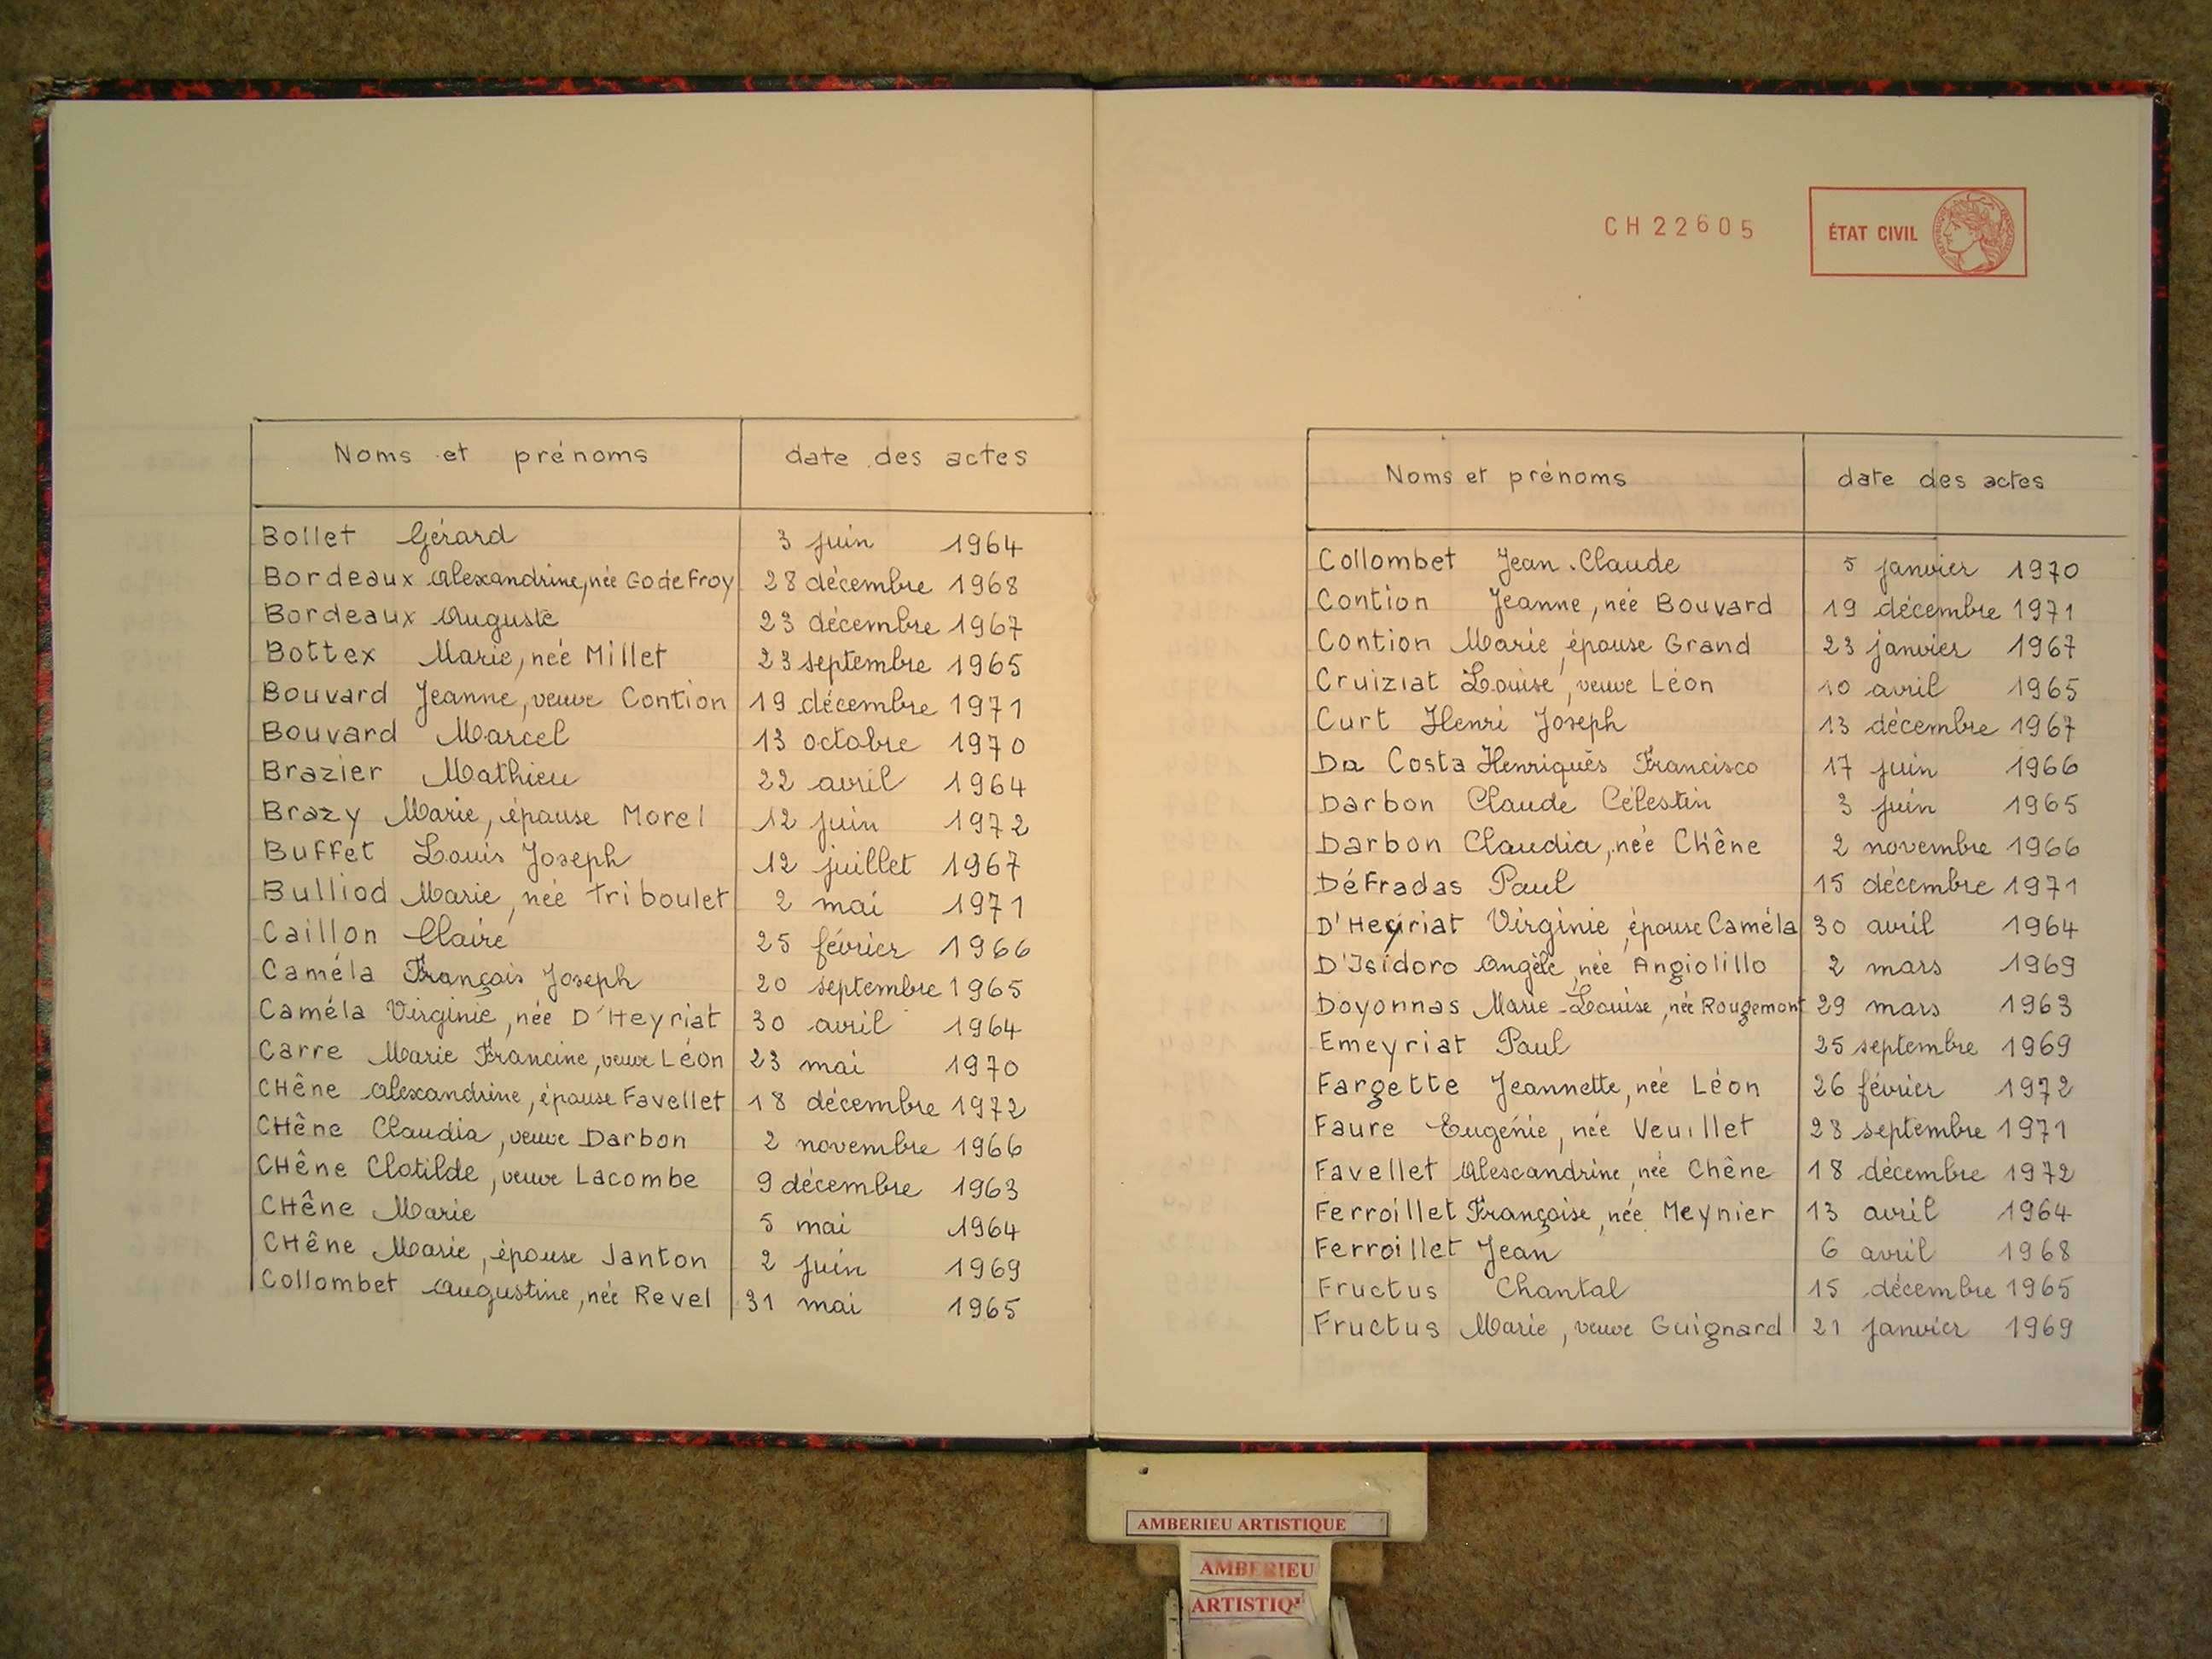 Noms et prénoms date des actes
Bollet Gérard 3 juin 1964
Bordeaux Alexandrine, née Godefroy 28 décembre 1968
Bordeaux Auguste 23 décembre 1967
Bottex Marie, née Millet 23 septembre 1965
Bouvard Jeanne, veuve Contion 19 décembre 1971
Bouvard Marcel 13 octobre 1970
Brazier Mathieu 22 avril 1964
Brazy Marie, épouse Morel 12 juin 1972
Buffet Louis Joseph 12 juillet 1967
Bulliod Marie, née Triboulet 2 mai 1971
Caillon Claire 25 février 1966
Caméla François Joseph 20 septembre 1965
Caméla Virginie, née D'Heyriat 30 avril 1964
Carre Marie Francine, veuve Léon 23 mai 1970
CHêne Alexandrine, épouse Favellet 18 décembre 1972
CHêne Claudia, veuve Darbon 2 novembre 1966
CHêne Clotilde, veuve Lacombe 9 décembre 1963
CHêne Marie 5 mai 1964
CHêne Marie, épouse Janton 2 juin 1969
Collombet Augustine, née Revel 31 mai 1965
CH22605 ÉTAT CIVIL
Noms et prénoms date des actes
Collombet Jean-Claude 5 janvier 1970
Contion Jeanne, née Bouvard 19 décembre 1971
Contion Marie, épouse Grand 23 janvier 1967
Cruiziat Louise, veuve Léon 10 avril 1965
Curt Henri Joseph 13 décembre 1967
Da Costa Henriquès Francisco 17 juin 1966
Darbon Claude Célestin 3 juin 1965
Darbon Claudia, née CHêne 2 novembre 1966
Défradas Paul 15 décembre 1971
D'Heyriat Virginie, épouse Caméla 30 avril 1964
D'Isidoro Angèle, née Angiolillo 2 mars 1969
Doyonnas Marie-Louise, née Rougemont 29 mars 1963
Emeyriat Paul 25 septembre 1969
Fargette Jeannette, née Léon 26 février 1972
Faure Eugénie, née Veuillet 28 septembre 1971
Favellet Alexandrine, née Chêne 18 décembre 1972
Ferroillet Françoise, née Meynier 13 avril 1964
Ferroillet Jean 6 avril 1968
Fructus Chantal 15 décembre 1965
Fructus Marie, veuve Guignard 21 janvier 1969
AMBERIEU ARTISTIQUE
AMBERIEU
ARTISTIQ